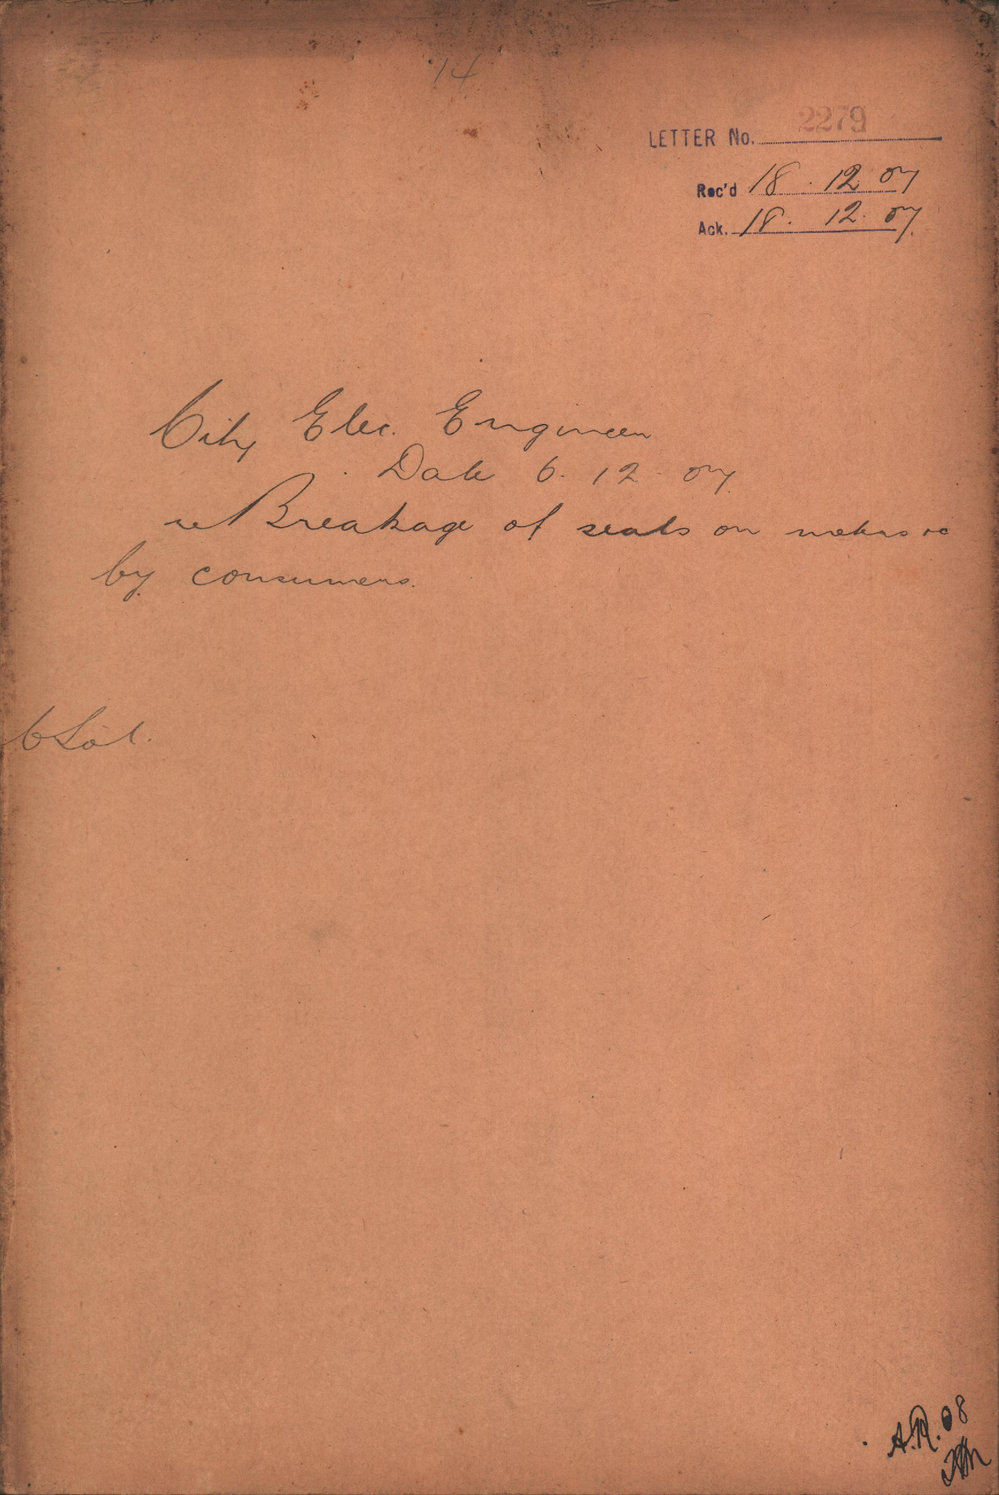 14
LETTER No. 2279
Rec'd 18.12.07
Ack. 18.12.07.
City Elec. Engineer
Date 6.12.07.
re Breakage of seals on meters &c
by consumers.
A.R. 08